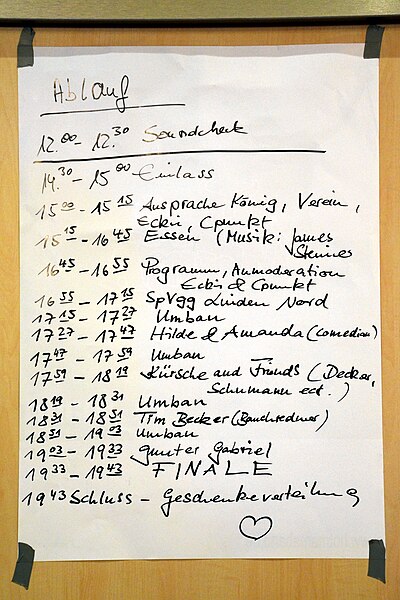 Ablauf
12.00 - 12.30 Soundcheck
14.30 - 15.00 Einlass
15 00 - 15 15 Ansprache König, Verein,
Ecki, Cpunkt
15 15 - 16 45 Essen (Musik: James
Steines
16 45 - 16 55 Programm, Anmoderation
Ecki & Cpunkt
16 55 - 17 15 SpVgg Linden Nord
17 15 - 17 27 Umbau
17 27 - 17 47 Hilde & Amanda (Comedian)
17 47 - 17 59 Umbau
17 59 - 18 19 Kürsche and Friends (Decker,
Schumann ect.)
18 19 - 18 31 Umbau
18 31 - 18 51 Tim Becker (Bauchredner)
18 51 - 19 03 Umbau
19 03 - 19 33 Gunter Gabriel
19 33 - 19 43 FINALE
19 43 Schluss - Geschenkeverteilung